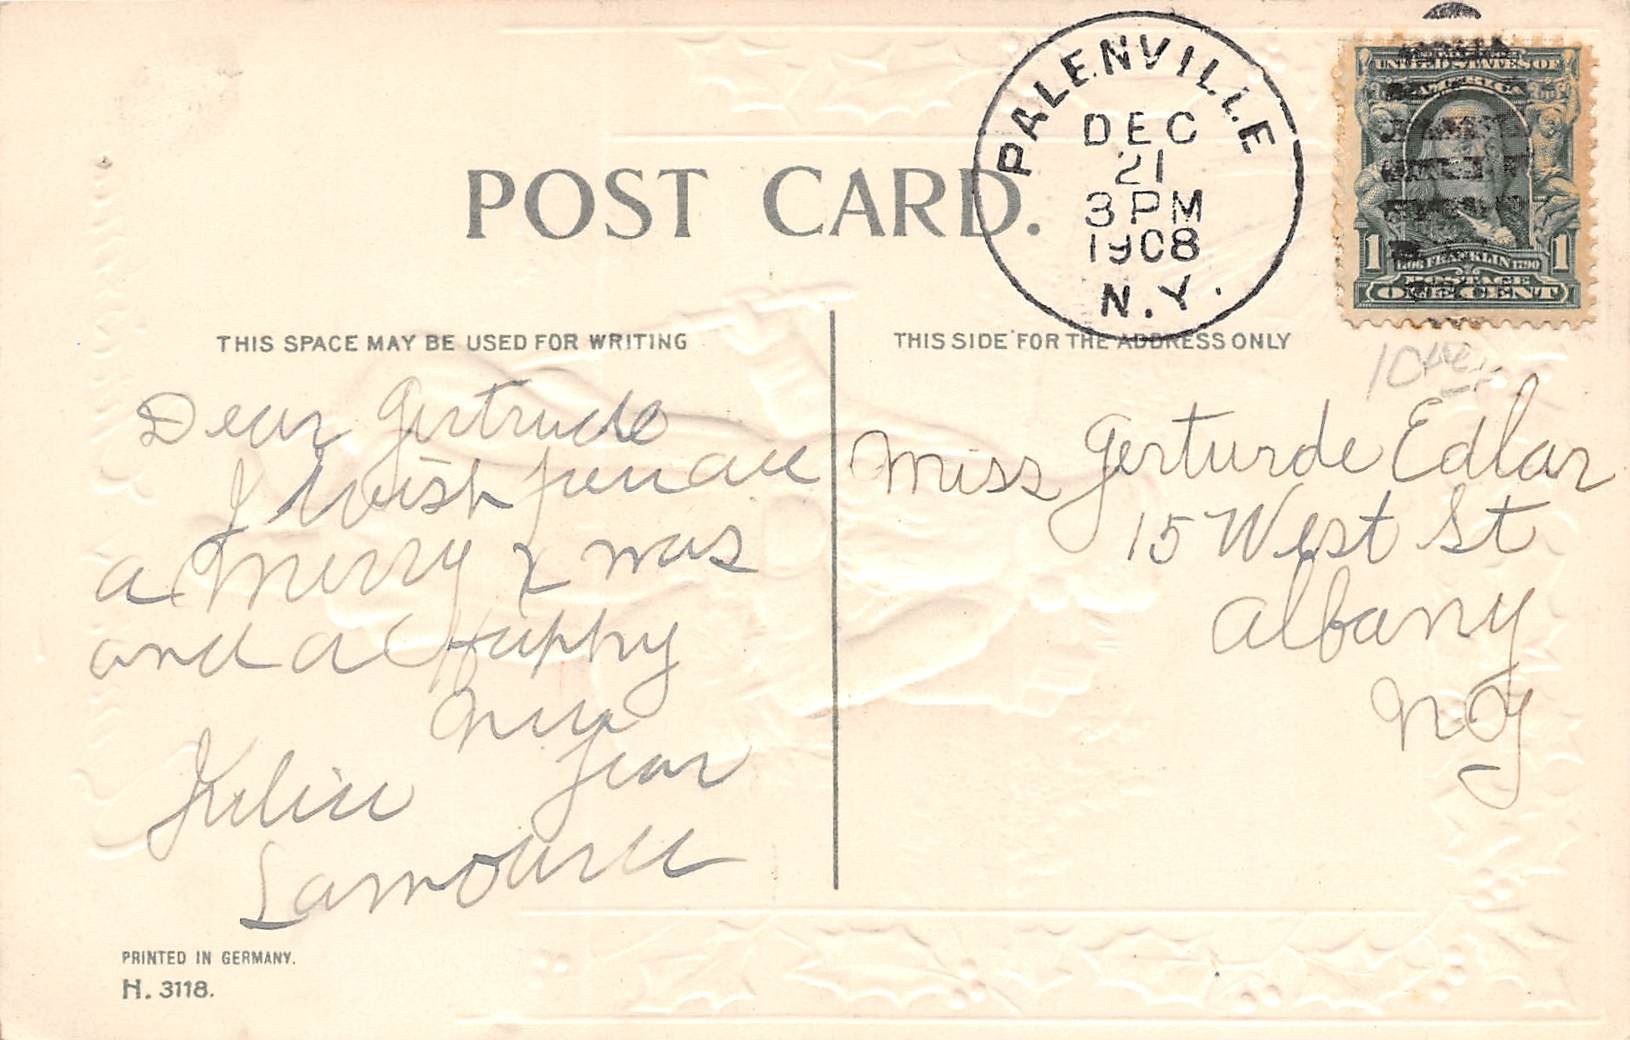 PALENVILLE
DEC
21
3 PM
1908
N.Y.
UNITED STATES OF
AMERICA
1706 FRANKLIN 1790
1 1
POSTAGE
ONE CENT
POST CARD.
THIS SPACE MAY BE USED FOR WRITING
Dear Gertrude
I wish you all
a Merry Xmas
and a Happy
New
Year
Julia
Lamouree
PRINTED IN GERMANY.
H. 3118.
THIS SIDE FOR THE ADDRESS ONLY
Miss Gerturde Edlar
15 West St
Albany
N Y